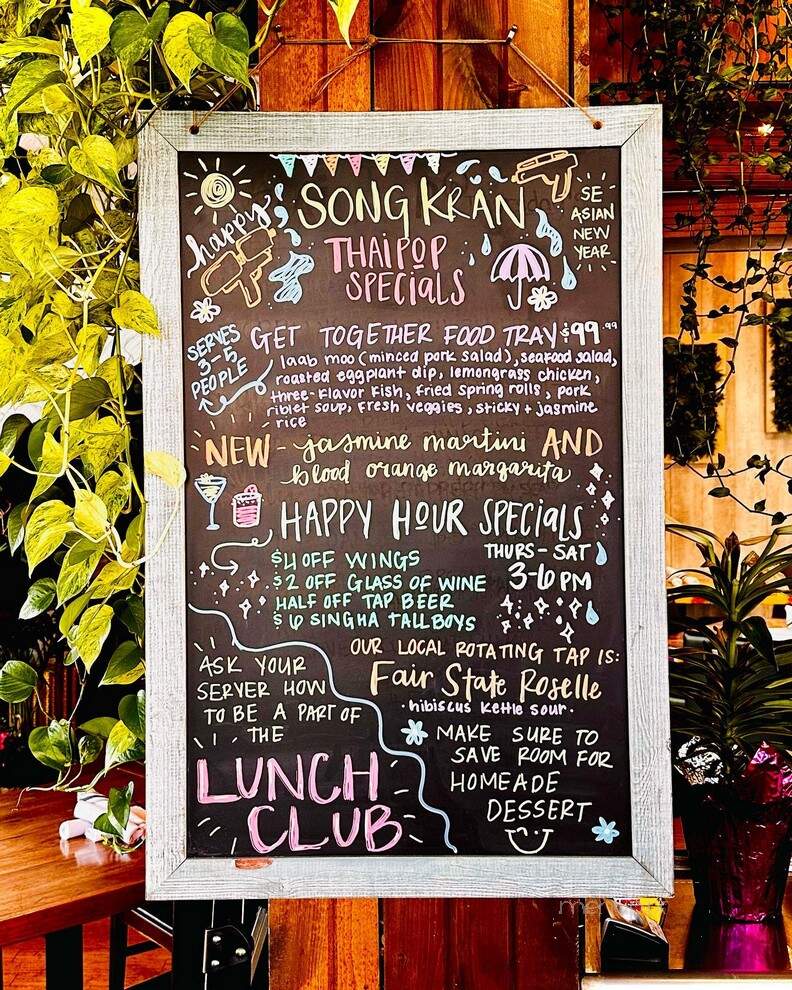 happy
SONGKRAN
SE
ASIAN
NEW
YEAR
THAIPOP
SPECIALS
SERVES
3-5
PEOPLE
GET TOGETHER FOOD TRAY $99.99
laab moo (minced pork salad), seafood salad,
roasted eggplant dip, lemongrass chicken,
three-flavor fish, fried spring rolls, pork
riblet soup, fresh veggies, sticky + jasmine
rice
NEW - jasmine martini AND
blood orange margarita
HAPPY HOUR SPECIALS
THURS - SAT
3-6 PM
$4 OFF WINGS
$2 OFF GLASS OF WINE
HALF OFF TAP BEER
$6 SINGHA TALLBOYS
OUR LOCAL ROTATING TAP IS:
Fair State Roselle
·hibiscus kettle sour·
ASK YOUR
SERVER HOW
TO BE A PART OF
THE
LUNCH
CLUB
MAKE SURE TO
SAVE ROOM FOR
HOMEADE
DESSERT